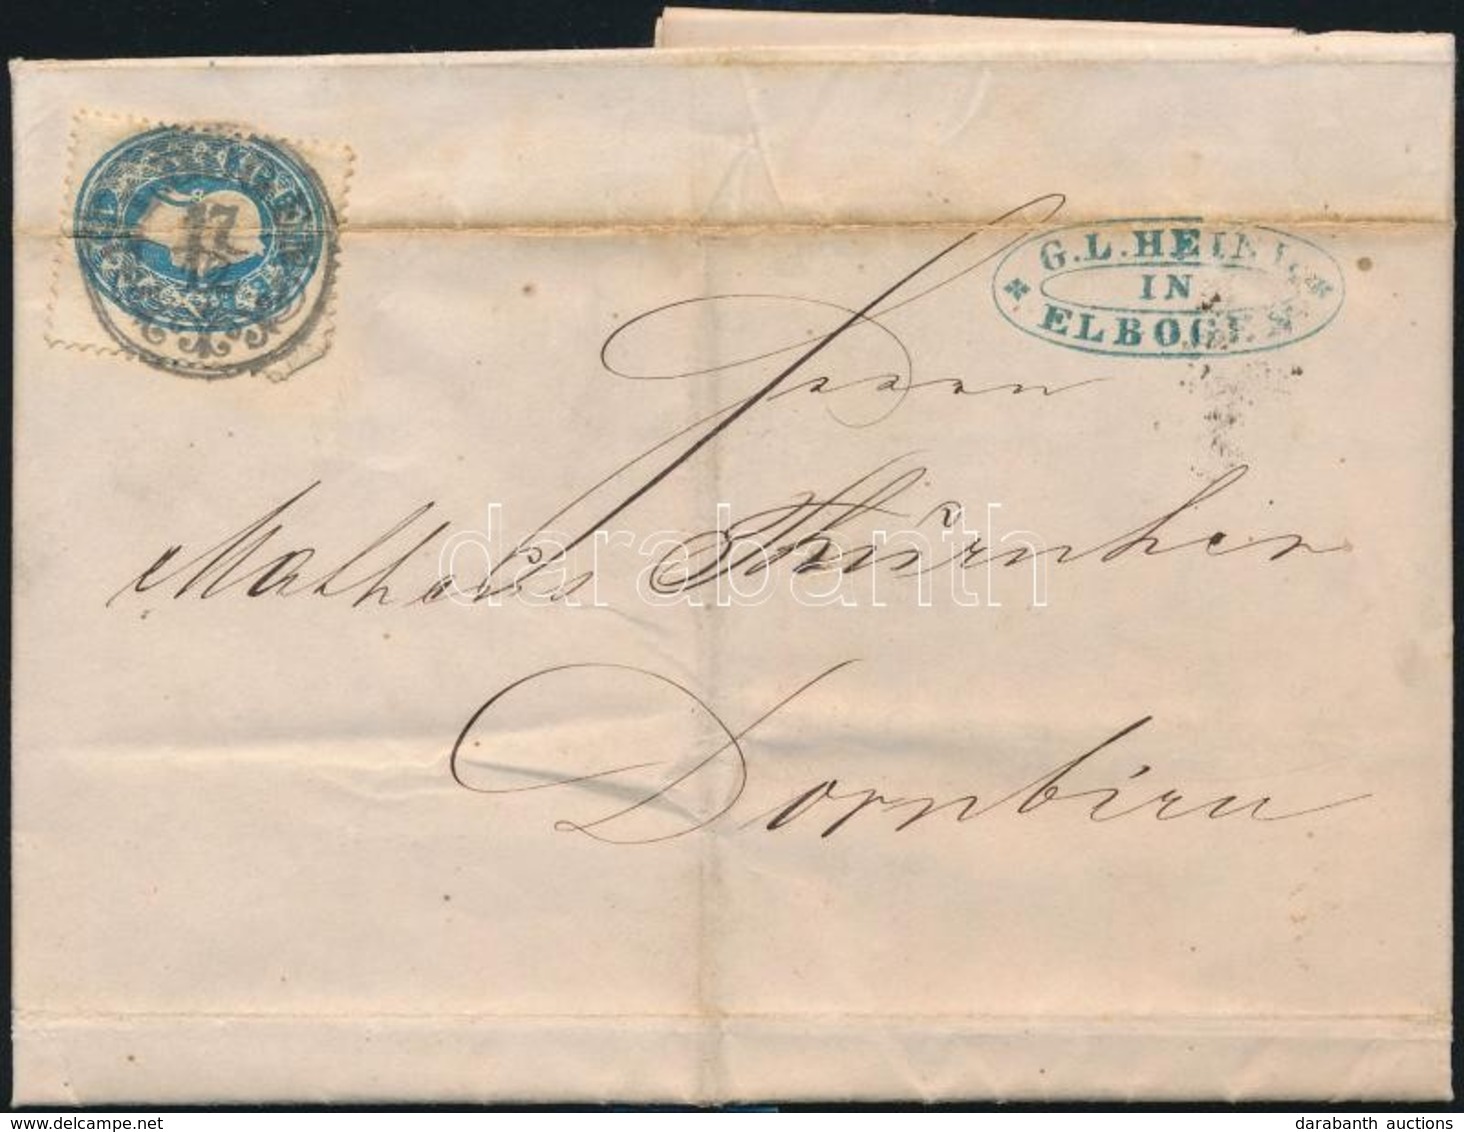 17
12
G. L. HEINL
IN
ELBOGEN
Herrn
Mathäus Thurnher
Dornbirn
darabanth
delcampe.net
darabanth auctions